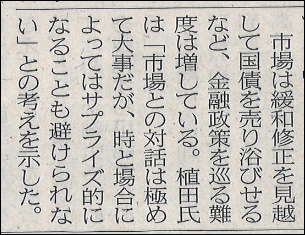 市場は緩和修正を見越
して国債を売り浴びせる
など、金融政策を巡る難
度は増している。植田氏
は「市場との対話は極め
て大事だが、時と場合に
よってはサプライズ的に
なることも避けられな
い」との考えを示した。